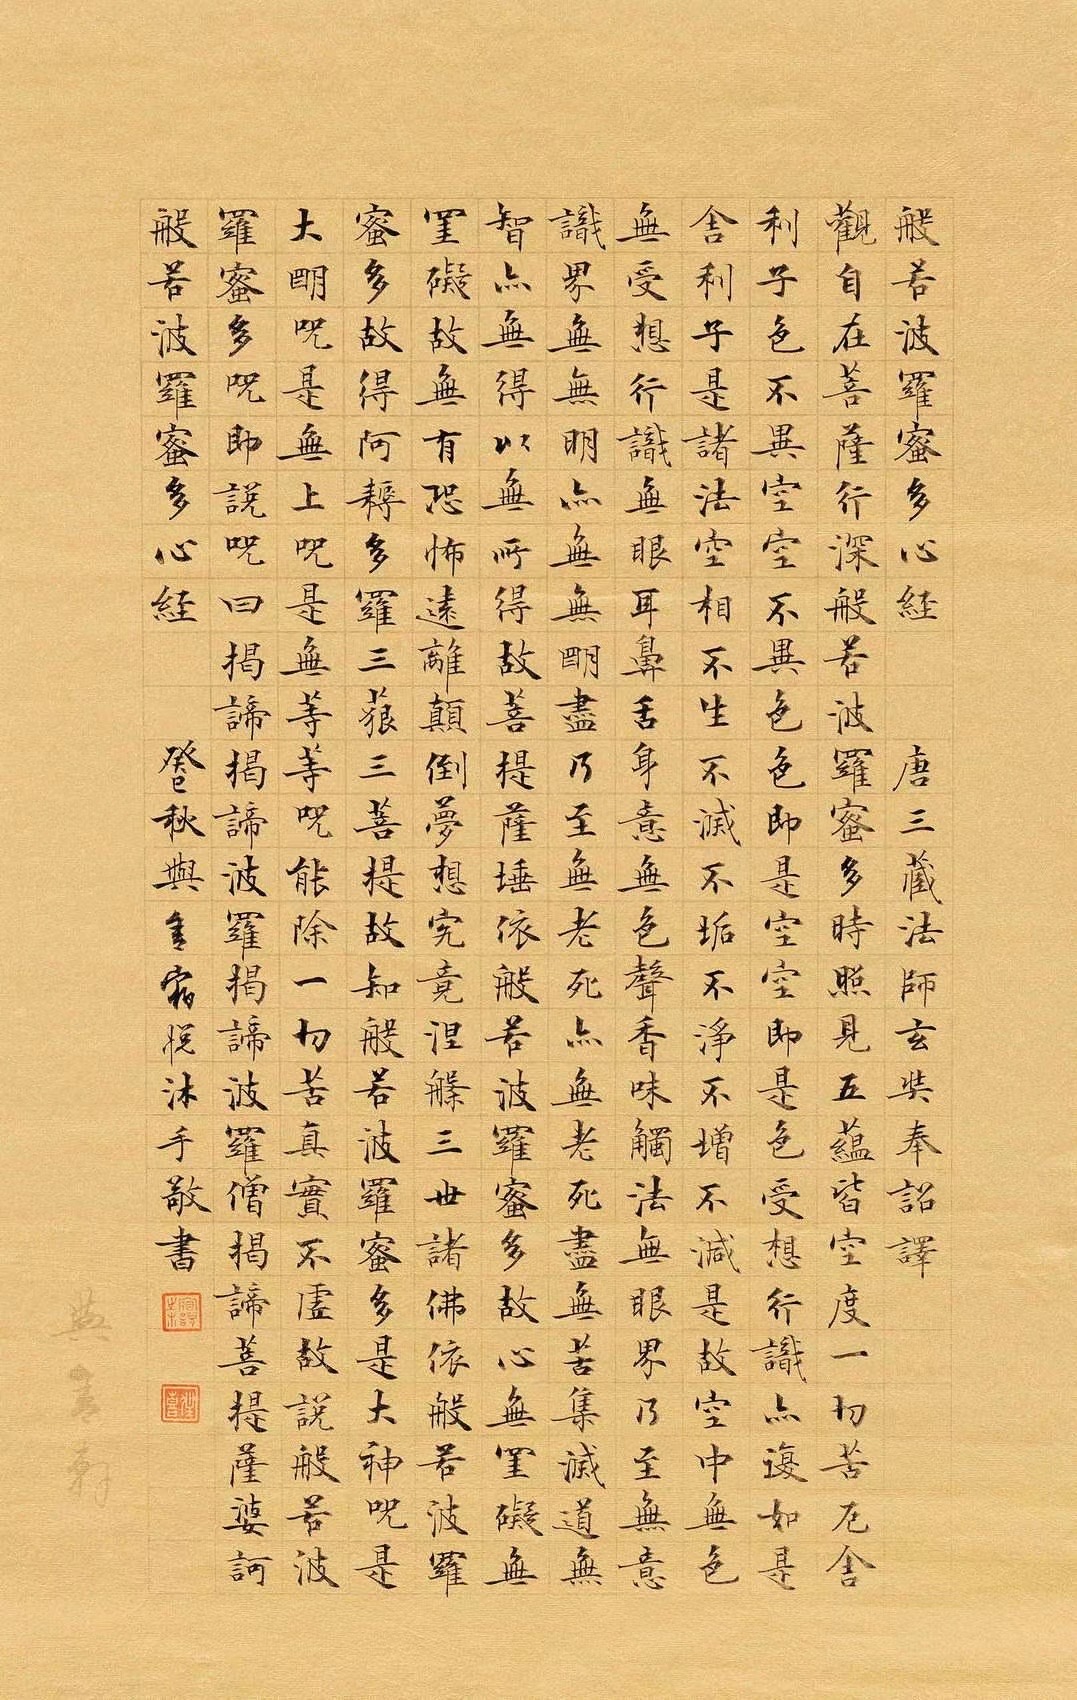 般若波羅蜜多心経 唐三藏法師玄奘奉詔譯
觀自在菩薩行深般若波羅蜜多時照見五蘊皆空度一切苦厄舎
利子色不異空空不異色色即是空空即是色受想行識亦復如是
舎利子是諸法空相不生不滅不垢不淨不增不減是故空中無色
無受想行識無眼耳鼻舌身意無色聲香味觸法無眼界乃至無意
識界無無明亦無無明盡乃至無老死亦無老死盡無苦集滅道無
智亦無得以無所得故菩提薩埵依般若波羅蜜多故心無罣礙無
罣礙故無有恐怖遠離顛倒夢想究竟涅槃三世諸佛依般若波羅
蜜多故得阿耨多羅三藐三菩提故知般若波羅蜜多是大神咒是
大明咒是無上咒是無等等咒能除一切苦真實不虛故說般若波
羅蜜多咒即說咒曰揭諦揭諦波羅揭諦波羅僧揭諦菩提薩婆訶
般若波羅蜜多心経 癸巳秋與 沐手敬書